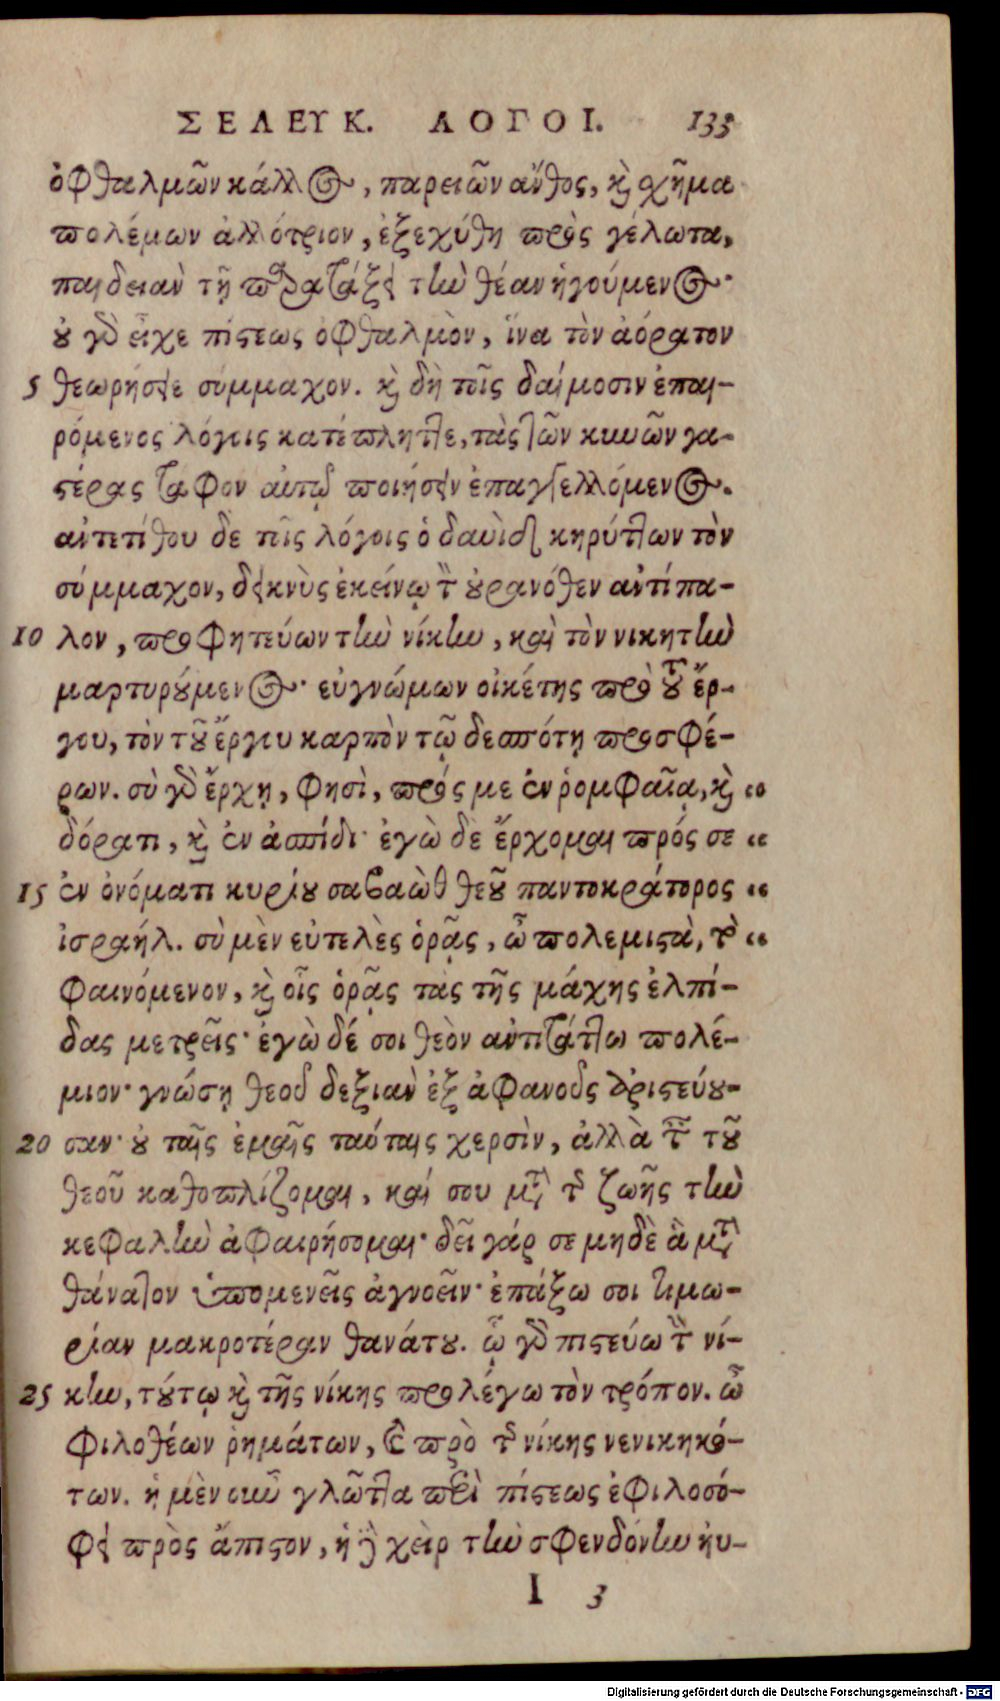 ΣΕΛΕΥΚ. ΛΟΓΟΙ. 133
ὀφθαλμῶν κάλλος, παρειῶν ἄνθος, καὶ σχῆμα
πολέμων ἀλλότριον, ἐξεχύθη πρὸς γέλωτα,
παιδειὰν τῇ παρατάξει τὴν θέαν ἡγούμενος·
οὐ γὰρ εἶχε πίστεως ὀφθαλμὸν, ἵνα τὸν ἀόρατον
5 θεωρήσειε σύμμαχον. καὶ δὴ τοῖς δαίμοσιν ἐπαι-
ρόμενος λόγοις κατέπληττε, τὰς τῶν κυνῶν γα-
στέρας τάφον αὐτῷ ποιήσειν ἐπαγγελλόμενος.
ἀντετίθου δὲ τοῖς λόγοις ὁ δαυὶδ κηρύττων τὸν
σύμμαχον, δεικνὺς ἐκείνῳ τὸν οὐρανόθεν ἀντίπα-
10 λον, προφητεύων τὴν νίκην, καὶ τὸν νικητὴν
μαρτυρούμενος· εὐγνώμων οἰκέτης πρὸ τοῦ ἔρ-
γου, τὸν τοῦ ἔργου καρπὸν τῷ δεσπότῃ προσφέ-
ρων. σὺ γὰρ ἔρχῃ, φησὶ, πρός με ἐν ῥομφαῖᾳ, καὶ “
δόρατι, καὶ ἐν ἀσπίδι· ἐγὼ δὲ ἔρχομαι πρός σε “
15 ἐν ὀνόματι κυρίου σαβαὼθ θεοῦ παντοκράτορος “
ἰσραήλ. σὺ μὲν εὐτελὲς ὁρᾷς, ὦ πολεμιστὰ, τὸ “
φαινόμενον, καὶ οἷς ὁρᾷς τὰς τῆς μάχης ἐλπί-
δας μετρεῖς· ἐγὼ δέ σοι θεὸν ἀντιτάττω πολέ-
μιον· γνώσῃ θεοῦ δεξιὰν ἐξ ἀφανοῦς ἀριστεύου-
20 σαν· οὐ ταῖς ἐμαῖς ταύταις χερσὶν, ἀλλὰ ταῖς τοῦ
θεοῦ καθοπλίζομαι, καί σου μετὰ τῆς ζωῆς τὴν
κεφαλὴν ἀφαιρήσομαι· δεῖ γάρ σε μηδὲ ἃ μετὰ
θάνατον ὑπομενεῖς ἀγνοεῖν· ἐπάξω σοι τιμω-
ρίαν μακροτέραν θανάτου. ᾧ γὰρ πιστεύω τὴν νί-
25 κην, τούτῳ καὶ τῆς νίκης προλέγω τὸν τρόπον. ὦ
φιλοθέων ῥημάτων, καὶ πρὸ τῆς νίκης νενικηκό-
των. ἡ μὲν οὖν γλῶττα περὶ πίστεως ἐφιλοσό-
φει πρὸς ἄπιστον, ἡ δὲ χεὶρ τὴν σφενδόνην ηὐ-
I 3
Digitalisierung gefördert durch die Deutsche Forschungsgemeinschaft - DFG